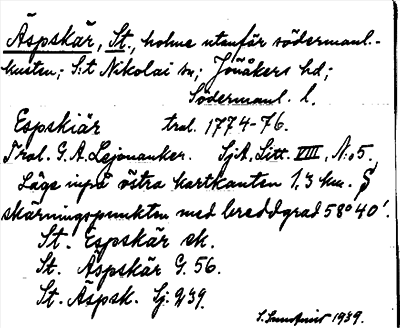 Äspskär, St., holme utanför södermanl.-
kusten; S:t Nikolai sn; Jönåkers hd;
Södermanl. l.
Espskiär tral. 1774-76.
Tral. G.A. Lejonanker. SjA, Litt. VIII, N:o 5,
Läge inpå östra kartkanten 1,3 km. S
skärningspunkten med breddgrad 58° 40'.
St. Espskär sk.
St. Äspskär G. 56.
St. Äspsk. Sj.
1939.